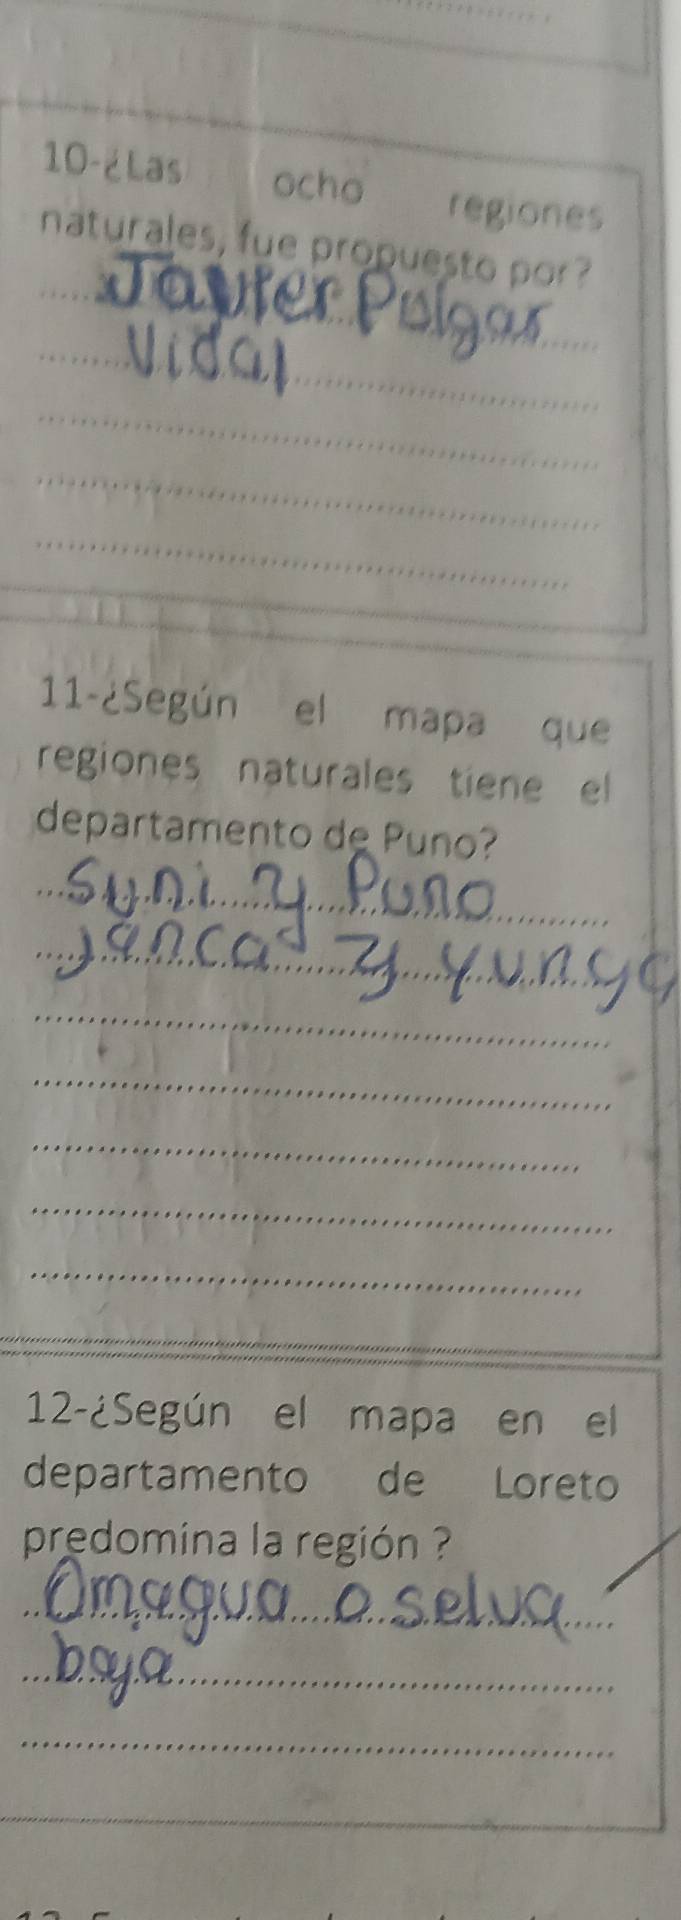 10-¿Las ocho regiones
naturales, fue propuesto por?
Javier Pulgar
Vidal
11-¿Según el mapa que
regiones naturales tiene el
departamento de Puno?
Suni y Puno
janca y yunga
12-¿Según el mapa en el
departamento de Loreto
predomina la región ?
Omagua o selva
baja